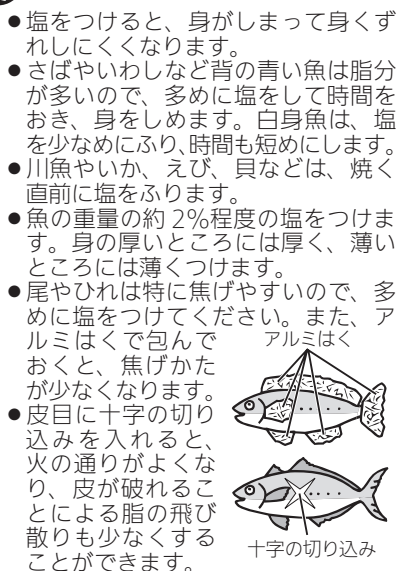 ●塩をつけると、身がしまって身くず
れしにくくなります。
●さばやいわしなど背の青い魚は脂分
が多いので、多めに塩をして時間を
おき、身をしめます。白身魚は、塩
を少なめにふり、時間も短めにします。
●川魚やいか、えび、貝などは、焼く
直前に塩をふります。
●魚の重量の約2%程度の塩をつけま
す。身の厚いところには厚く、薄い
ところには薄くつけます。
●尾やひれは特に焦げやすいので、多
めに塩をつけてください。また、ア
ルミはくで包んで
おくと、焦げかた
が少なくなります。
アルミはく
●皮目に十字の切り
込みを入れると、
火の通りがよくな
り、皮が破れるこ
とによる脂の飛び
散りも少なくする
ことができます。
十字の切り込み